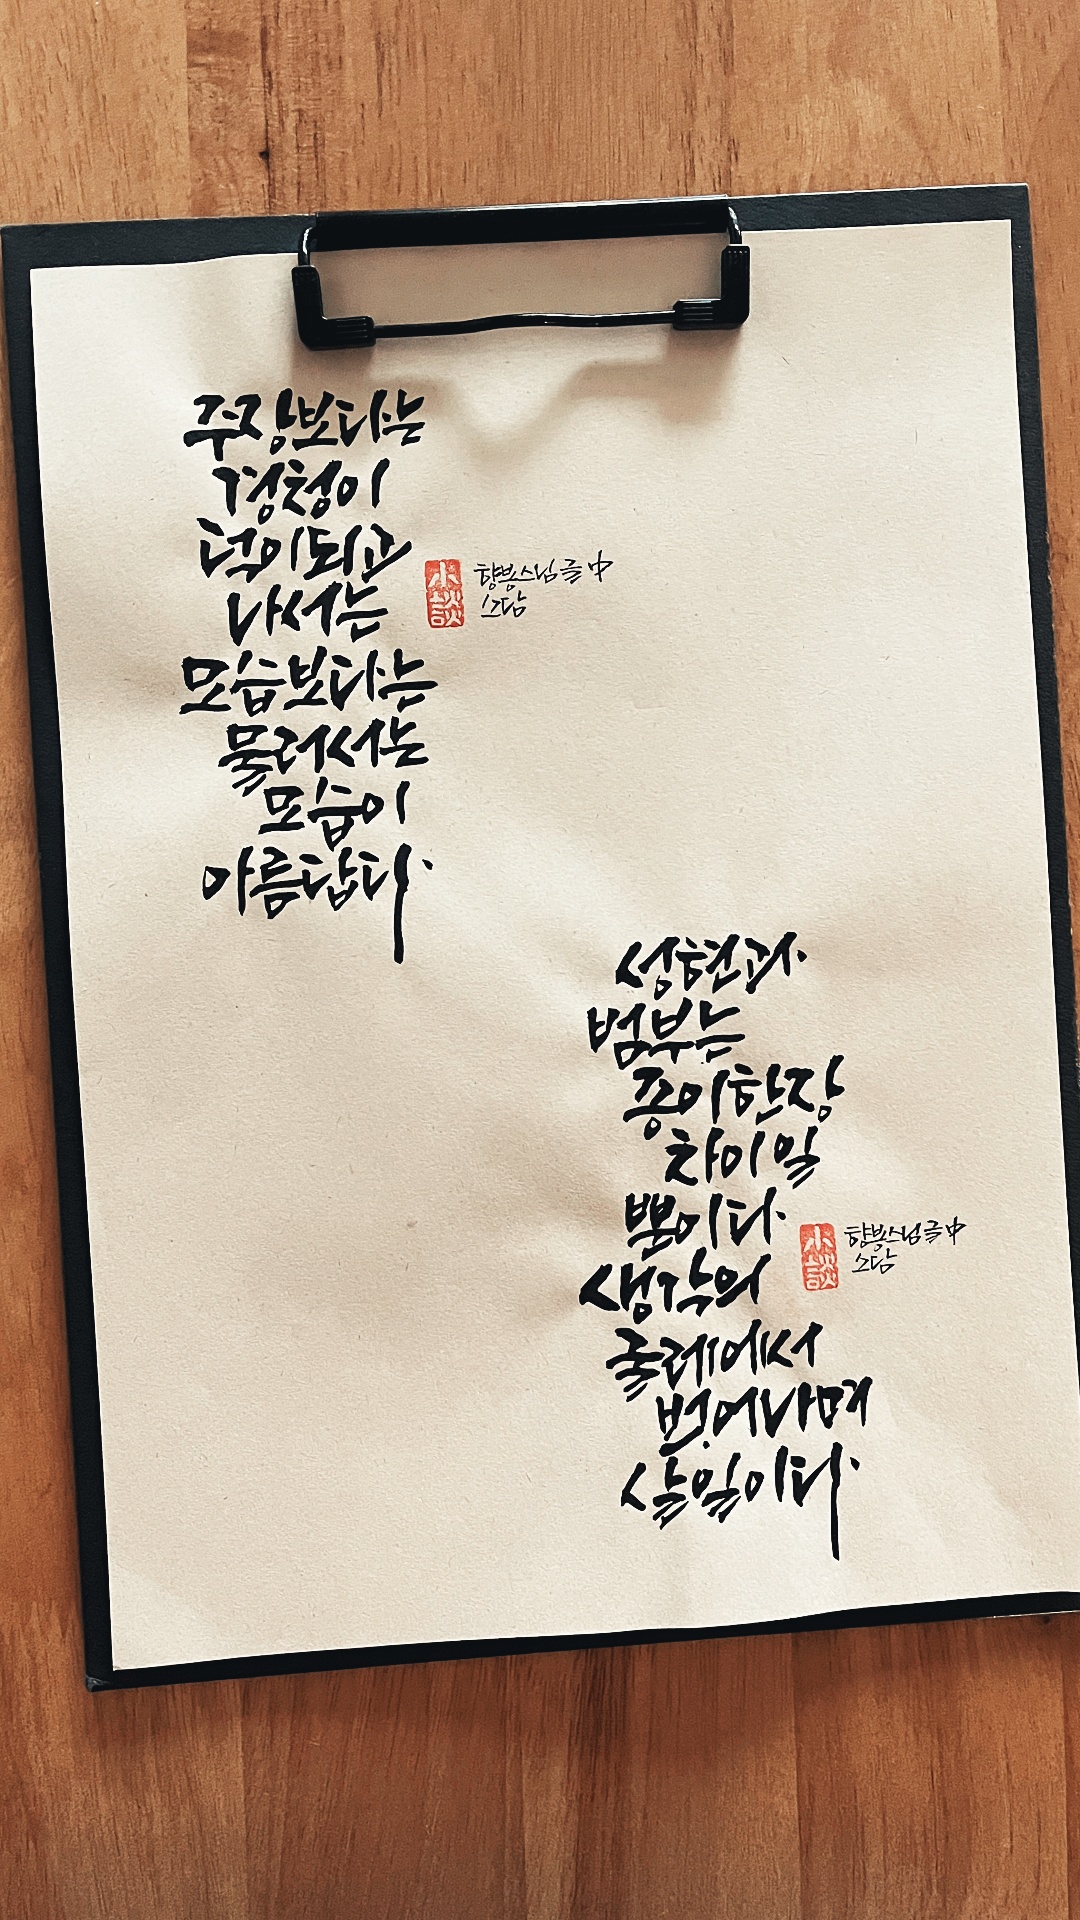 주장보다는
경청이
덕이되고
나서는
모습보다는
물러서는
모습이
아름답다.
小談
향봉스님 글 中
소담
성현과
범부는
종이한장
차이일
뿐이다.
생각의
굴레에서
벗어나며
살일이다.
小談
향봉스님 글 中
소담